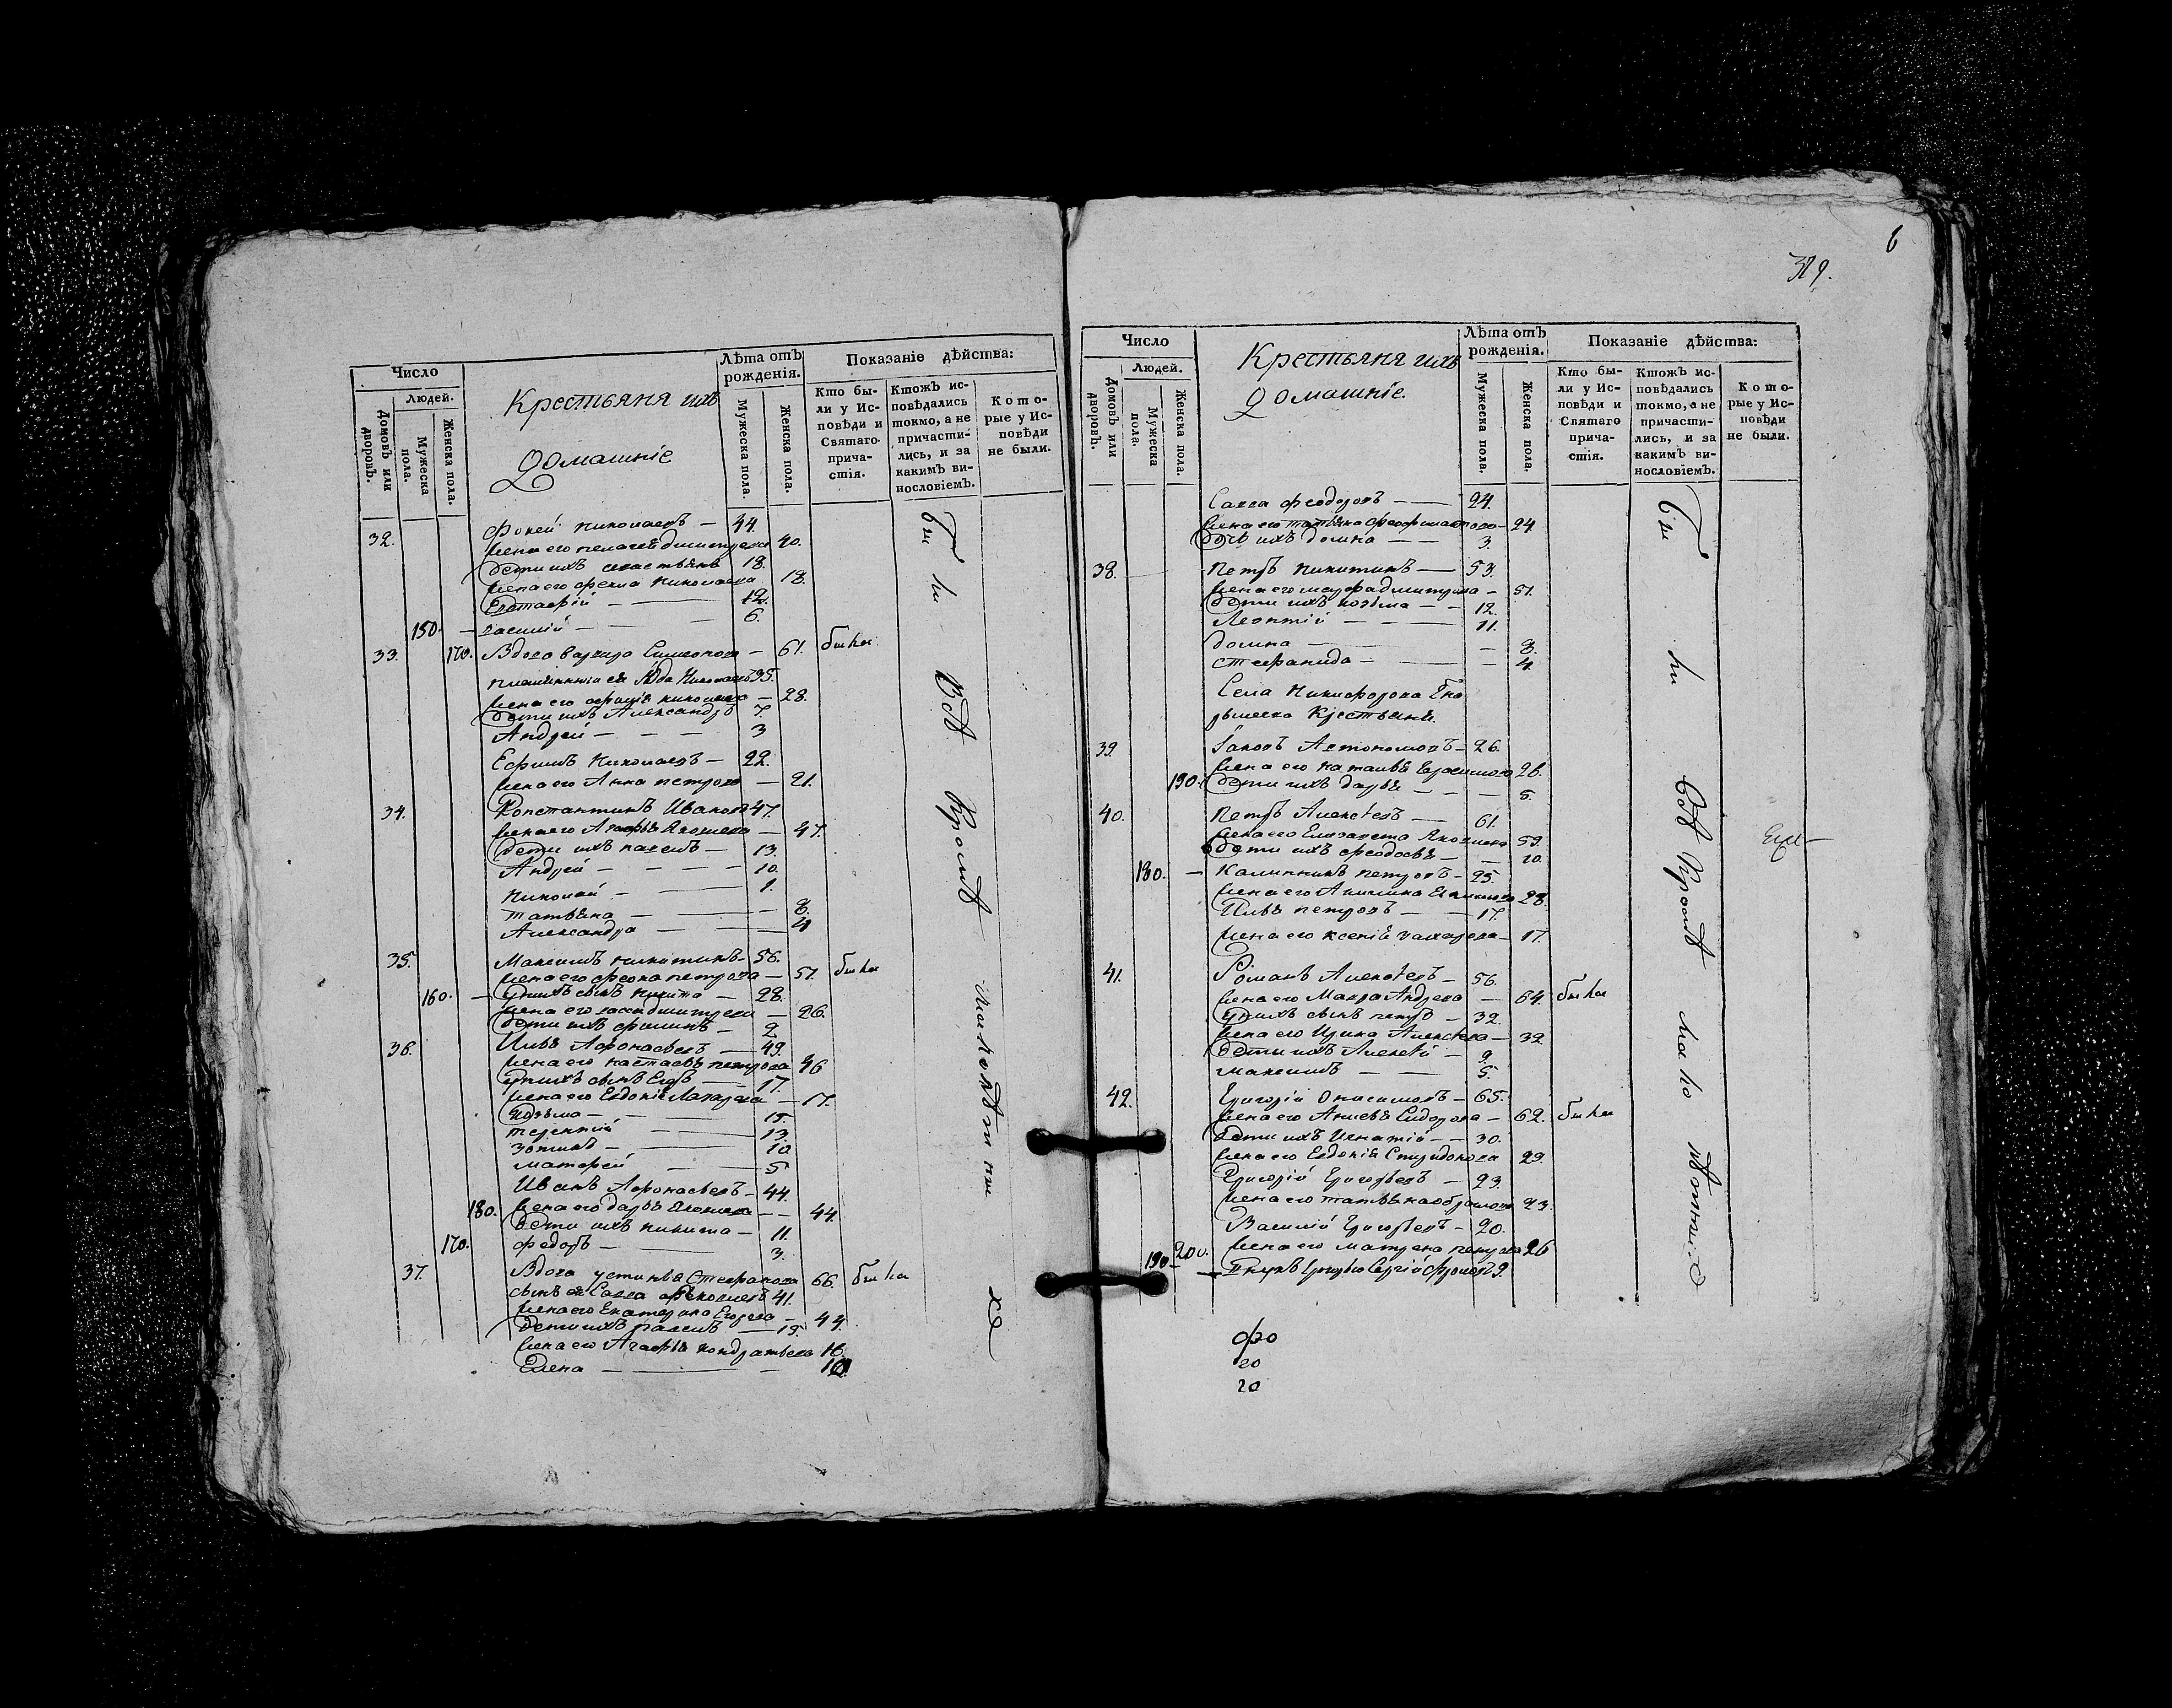 Число
Людей.
Домовъ или дворовъ.
Мужеска пола.
Женска пола.
Крестьяня ихъ
Домашніе
Лѣта отъ рожденія.
Мужеска пола.
Женска пола.
Показаніе дѣйства:
Кто были у Исповѣди и Святаго причастія.
Ктожъ исповѣдались токмо, а не причастились, и за какимъ винословіемъ.
Которые у Исповѣди не были.
32. Фокей Николаевъ — 44.
жена его пелагея дмитрева 40.
18.
жена его фекла Николаева 18.
Евстафій — 12.
150. — василій — 6.
33. 170. Вдова варвара Симеонова — 61. были
35.
жена его николаева — 28.
дети ихъ Александръ 7
Андрей — 3
Ефимъ Николаевъ — 22.
жена его Анна петрова — 21.
34. Константинъ Ивановъ 47.
жена его Агафья Яковлева — 47.
дети ихъ павелъ — 13.
Андрей — 10.
Николай — 1.
татьяна — 8.
Александра — 4
35. Максимъ никитинъ — 56.
жена его феона петрова — 51. были
160. — у нихъ сынъ никита — 28.
жена его дмитрева — 26.
дети ихъ филипъ — 2
36. Илья Афонасьевъ — 49.
жена его настасья петрова 46
у нихъ сынъ Егоръ — 17.
жена его Евдокія Лазарева — 17.
козьма — 15.
терентій — 13.
зотикъ — 10
матфей — 5
Иванъ Афонасьевъ — 44.
180. жена его дарья Яковлева — 44.
дети ихъ никита — 11.
170. федоръ — 3.
37. Вдова устинья Стефанова 66. были
сынъ ея Савва 41.
жена его Екатерина Егорева — 44.
дети ихъ павелъ — 15.
жена его Агафья кондратьева 16.
Елена — 10
Бы ли Всѣ Кромѣ Малолѣтныхъ
6
329.
Число
Людей.
Домовъ или дворовъ.
Мужеска пола.
Женска пола.
Крестьяня ихъ
Домашніе.
Лѣта отъ рожденія.
Мужеска пола.
Женска пола.
Показаніе дѣйства:
Кто были у Исповѣди и Святаго причастія.
Ктожъ исповѣдались токмо, а не причастились, и за какимъ винословіемъ.
Которые у Исповѣди не были.
Савва феодоровъ — 24.
жена его татьяна 24
дочь ихъ домна — 3.
38. Петръ Никитинъ — 53.
жена его марфа дмитрева — 51.
дети ихъ козьма — 12.
Леонтій — 11.
домна — 8.
стефанида — 4.
Села Никифорова
Крестьяня.
39. Іаковъ Автономовъ — 26.
жена его наталья Герасимова 26.
190. дети ихъ дарья — 5.
40. Петръ Алексѣевъ — 61.
жена его Елизавета Яковлева 59.
дети ихъ феодосья — 20.
180. — Калинникъ петровъ — 25.
жена его Акилина 28.
Илья петровъ — 17.
жена его ксенія захарова — 17.
41. Романъ Алексѣевъ — 56.
жена его Мавра Андрева — 64. были
у нихъ сынъ петръ — 32.
жена его Ирина Алексѣева — 32
дети ихъ Алексѣй — 9.
максимъ — 5.
42. Григорій Онисимовъ — 65.
жена его Анисья Сидорова — 62. были
дети ихъ Игнатій — 30.
жена его Евдокія Спиридонова 29.
Григорій Григорьевъ — 23
жена его татьяна 23.
Василій Григорьевъ — 20.
200. жена его матрена петрова 26
190 — Внукъ Сергій фроловъ 9.
Бы ли Всѣ Кромѣ Мало лѣтныхъ